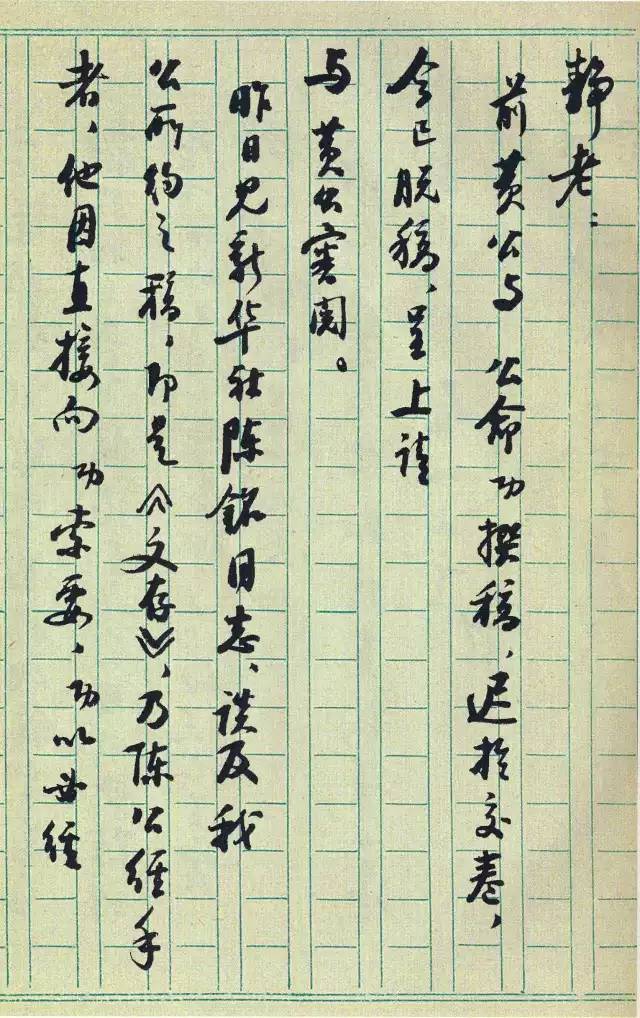 静老：
前黄公与公命功撰稿，迟于交卷，
今已脱稿，呈上请
与黄公审阅。
昨日见新华社陈铭同志，谈及我
公所约之稿，即是《文存》，乃陈公经手
者，他因直接向功索要，功以曾经